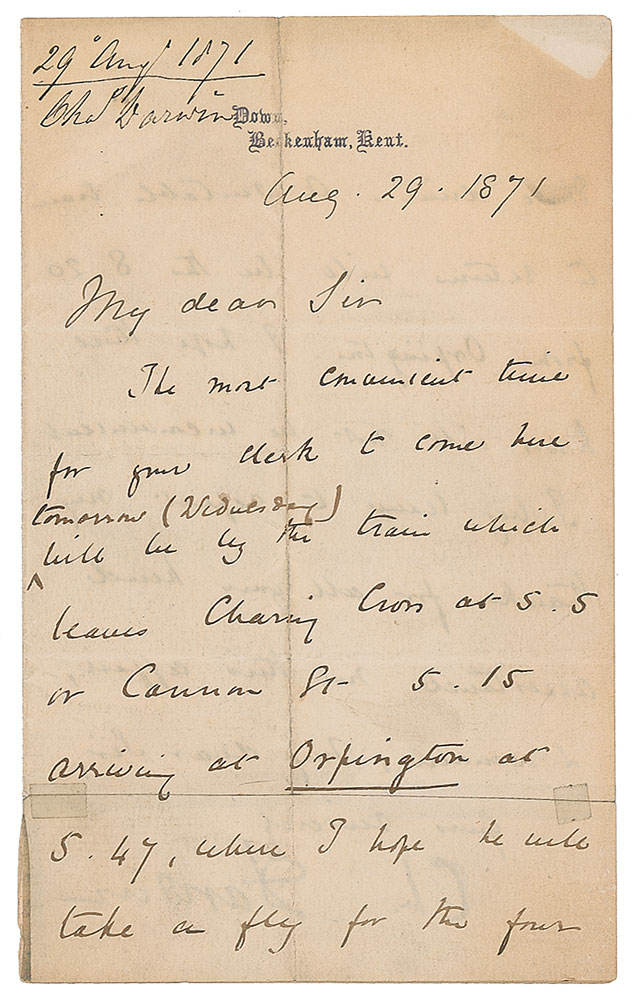 29 Augt 1871
Chas Darwin
Down,
Beckenham, Kent.
Aug. 29. 1871
My dear Sir
The most convenient time
for your clerk to come here
tomorrow (Wednesday)
will be by the train which
leaves Charing Cross at 5.5
or Cannon St 5.15
arriving at Orpington at
5.47, where I hope he will
take a fly for the four